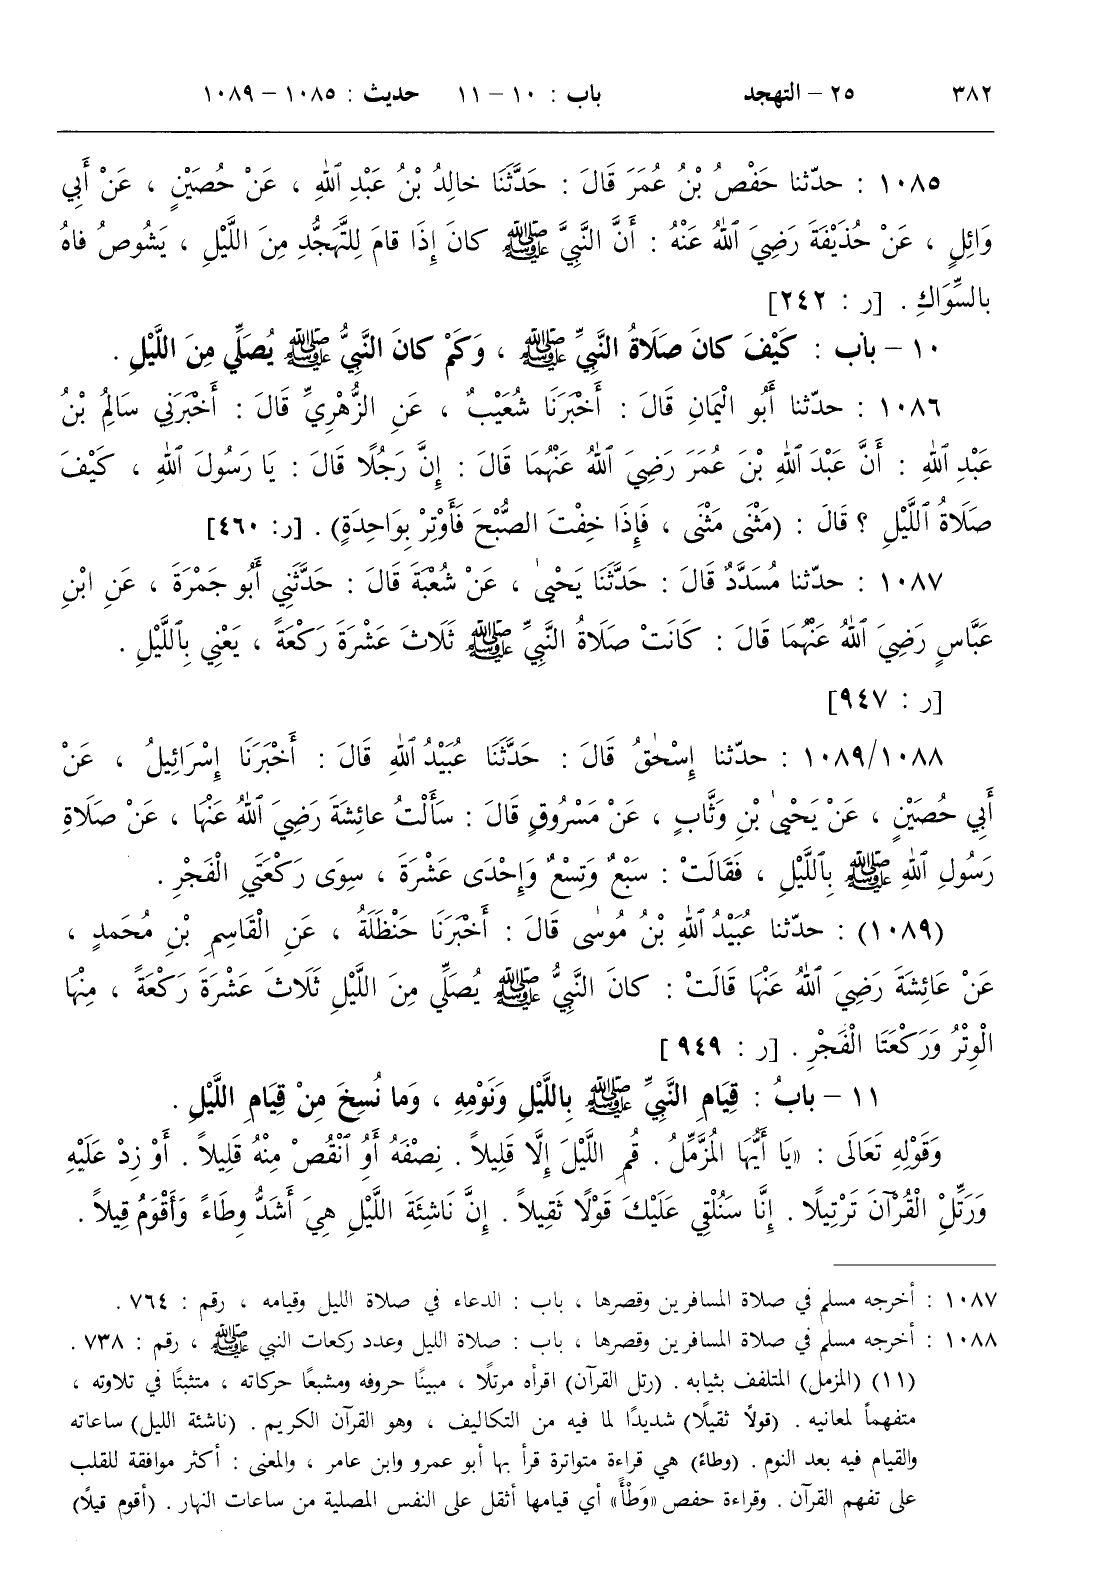 ٣٨٢ ٢٥ – التهجد باب : ١٠ – ١١ حديث : ١٠٨٥ – ١٠٨٩
١٠٨٥ : حدّثنا حَفْصُ بْنُ عُمَرَ قَالَ : حَدَّثَنَا خالِدُ بْنُ عَبْدِ ٱللهِ ، عَنْ حُصَيْنٍ ، عَنْ أَبِي
وَائِلٍ ، عَنْ حُذَيْفَةَ رَضِيَ ٱللهُ عَنْهُ : أَنَّ النَّبِيَّ ﷺ كانَ إِذَا قامَ لِلتَّهَجُّدِ مِنَ اللَّيْلِ ، يَشُوصُ فاهُ
بالسِّوَاكِ . [ر : ٢٤٢]
١٠ – باب : كَيْفَ كانَ صَلَاةُ النَّبِيِّ ﷺ ، وَكَمْ كانَ النَّبِيُّ ﷺ يُصَلِّي مِنَ اللَّيْلِ .
١٠٨٦ : حدّثنا أَبُو الْيَمَانِ قَالَ : أَخْبَرَنَا شُعَيْبٌ ، عَنِ الزُّهْرِيِّ قَالَ : أَخْبَرَنِي سَالِمُ بْنُ
عَبْدِ ٱللهِ : أَنَّ عَبْدَ ٱللهِ بْنَ عُمَرَ رَضِيَ ٱللهُ عَنْهُمَا قَالَ : إِنَّ رَجُلًا قَالَ : يَا رَسُولَ ٱللهِ ، كَيْفَ
صَلَاةُ ٱللَّيْلِ ؟ قَالَ : (مَثْنَى مَثْنَى ، فَإِذَا خِفْتَ الصُّبْحَ فَأَوْتِرْ بِوَاحِدَةٍ) . [ر: ٤٦٠]
١٠٨٧ : حدّثنا مُسَدَّدٌ قَالَ : حَدَّثَنَا يَحْيىٰ ، عَنْ شُعْبَةَ قَالَ : حَدَّثَنِي أَبُو جَمْرَةَ ، عَنِ ابْنِ
عَبَّاسٍ رَضِيَ ٱللهُ عَنْهُمَا قَالَ : كَانَتْ صَلَاةُ النَّبِيِّ ﷺ ثَلَاثَ عَشْرَةَ رَكْعَةً ، يَعْنِي بِٱللَّيْلِ .
[ر : ٩٤٧]
١٠٨٩/١٠٨٨ : حدّثنا إِسْحٰقُ قَالَ : حَدَّثَنَا عُبَيْدُ ٱللهِ قَالَ : أَخْبَرَنَا إِسْرَائِيلُ ، عَنْ
أَبِي حُصَيْنٍ ، عَنْ يَحْيىٰ بْنِ وَثَّابٍ ، عَنْ مَسْرُوقٍ قَالَ : سَأَلْتُ عائِشَةَ رَضِيَ ٱللهُ عَنْهَا ، عَنْ صَلَاةِ
رَسُولِ ٱللهِ ﷺ بِٱللَّيْلِ ، فَقَالَتْ : سَبْعٌ وَتِسْعٌ وَإِحْدَى عَشْرَةَ ، سِوَى رَكْعَتَيِ الْفَجْرِ .
(١٠٨٩) : حدّثنا عُبَيْدُ ٱللهِ بْنُ مُوسٰى قَالَ : أَخْبَرَنَا حَنْظَلَةُ ، عَنِ الْقَاسِمِ بْنِ مُحَمدٍ ،
عَنْ عَائِشَةَ رَضِيَ ٱللهُ عَنْهَا قَالَتْ : كانَ النَّبِيُّ ﷺ يُصَلِّي مِنَ اللَّيْلِ ثَلَاثَ عَشْرَةَ رَكْعَةً ، مِنْهَا
الْوِتْرُ وَرَكْعَتَا الْفَجْرِ . [ر : ٩٤٩]
١١ – بابُ : قِيَامِ النَّبِيِّ ﷺ بِاللَّيْلِ وَنَوْمِهِ ، وَما نُسِخَ مِنْ قِيَامِ اللَّيْلِ .
وَقَوْلِهِ تَعَالَى : «يَا أَيُّهَا المُزَّمِّلُ . قُمِ اللَّيْلَ إِلَّا قَلِيلاً . نِصْفَهُ أَوُ ٱنْقُصْ مِنْهُ قَلِيلاً . أَوْ زِدْ عَلَيْهِ
وَرَتِّلْ الْقُرْآنَ تَرْتِيلًا . إِنَّا سَنُلْقِي عَلَيْكَ قَوْلًا ثَقِيلاً . إِنَّ نَاشِئَةَ اللَّيْلِ هِيَ أَشَدُّ وِطَاءً وَأَقْوَمُ قِيلاً .
١٠٨٧ : أخرجه مسلم في صلاة المسافرين وقصرها ، باب : الدعاء في صلاة الليل وقيامه ، رقم : ٧٦٤ .
١٠٨٨ : أخرجه مسلم في صلاة المسافرين وقصرها ، باب : صلاة الليل وعدد ركعات النبي ﷺ ، رقم : ٧٣٨ .
(١١) (المزمل) المتلفف بثيابه . (رتل القرآن) اقرأه مرتلاً ، مبينًا حروفه ومشبعًا حركاته ، متثبتًا في تلاوته ،
متفهماً لمعانيه . (قولاً ثقيلًا) شديدًا لما فيه من التكاليف ، وهو القرآن الكريم . (ناشئة الليل) ساعاته
والقيام فيه بعد النوم . (وطاءً) هي قراءة متواترة قرأ بها أبو عمرو وابن عامر ، والمعنى : أكثر موافقة للقلب
على تفهم القرآن . وقراءة حفص «وَطْأً» أي قيامها أثقل على النفس المصلية من ساعات النهار . (أقوم قيلًا)